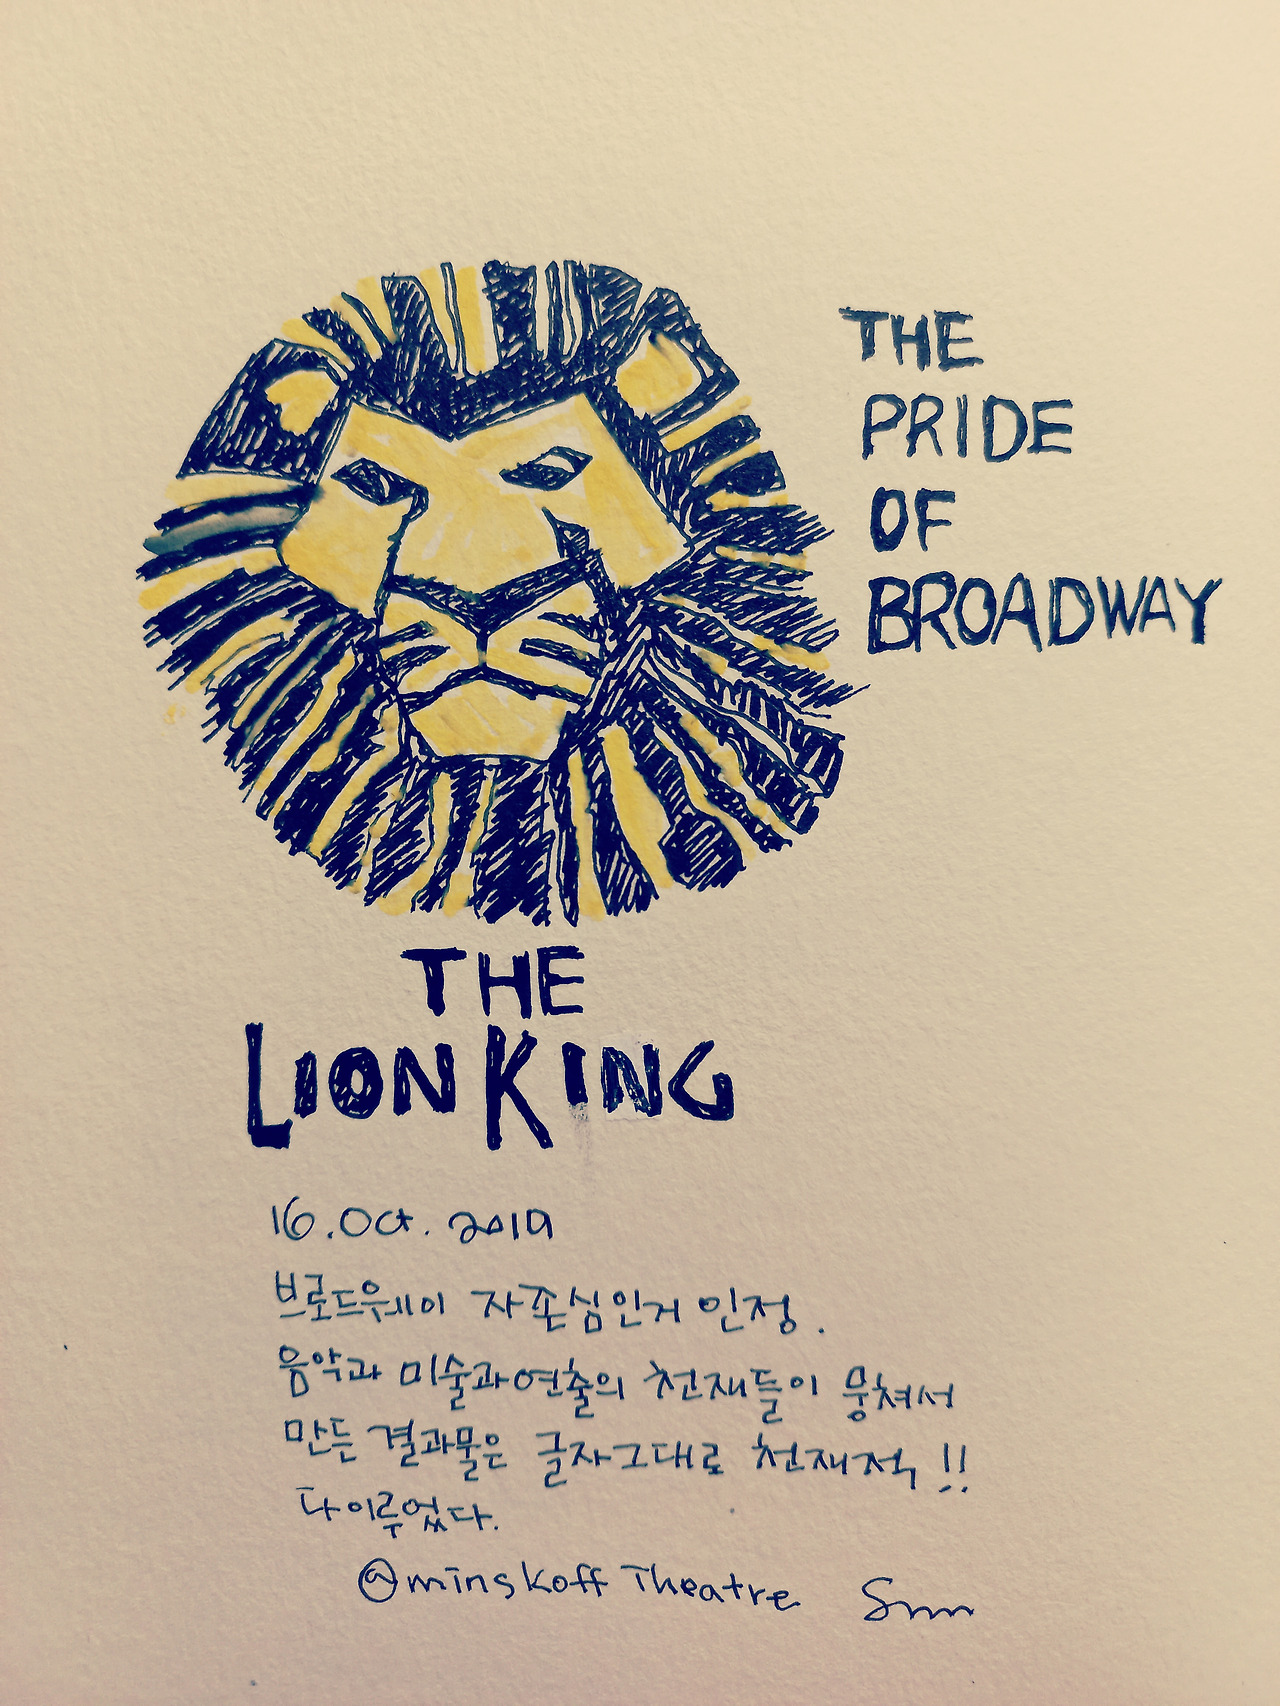 THE
PRIDE
OF
BROADWAY
THE
LION KING
16. Oct. 2019
브로드웨이 자존심인거 인정.
음악과 미술과 연출의 천재들이 뭉쳐서
만든 결과물은 글자그대로 천재적!!
다이루었다.
@minskoff Theatre